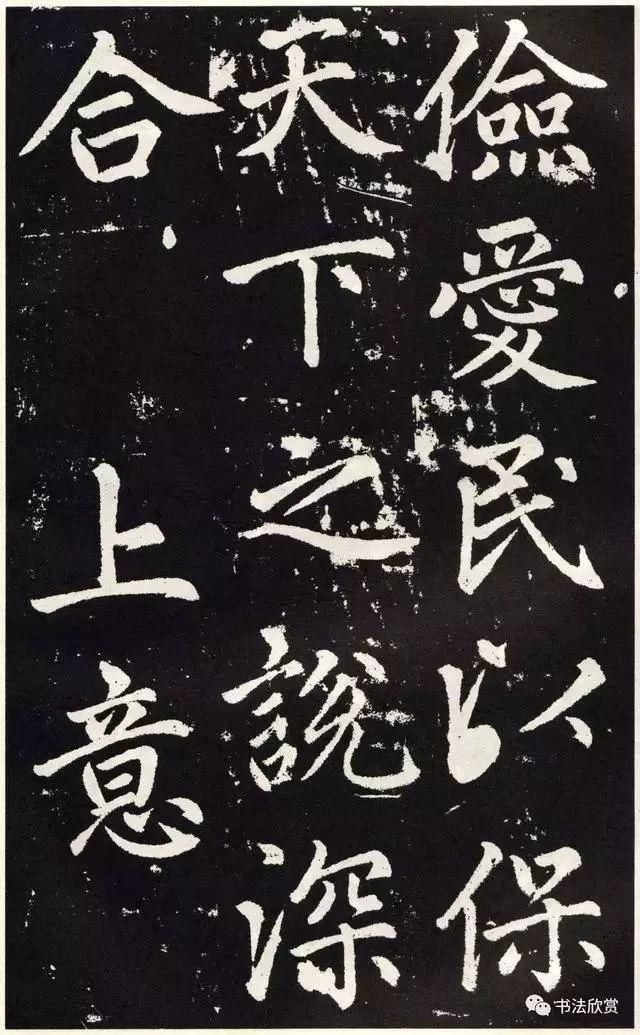 儉愛民以保
天下之說深
合
上意
书法欣赏